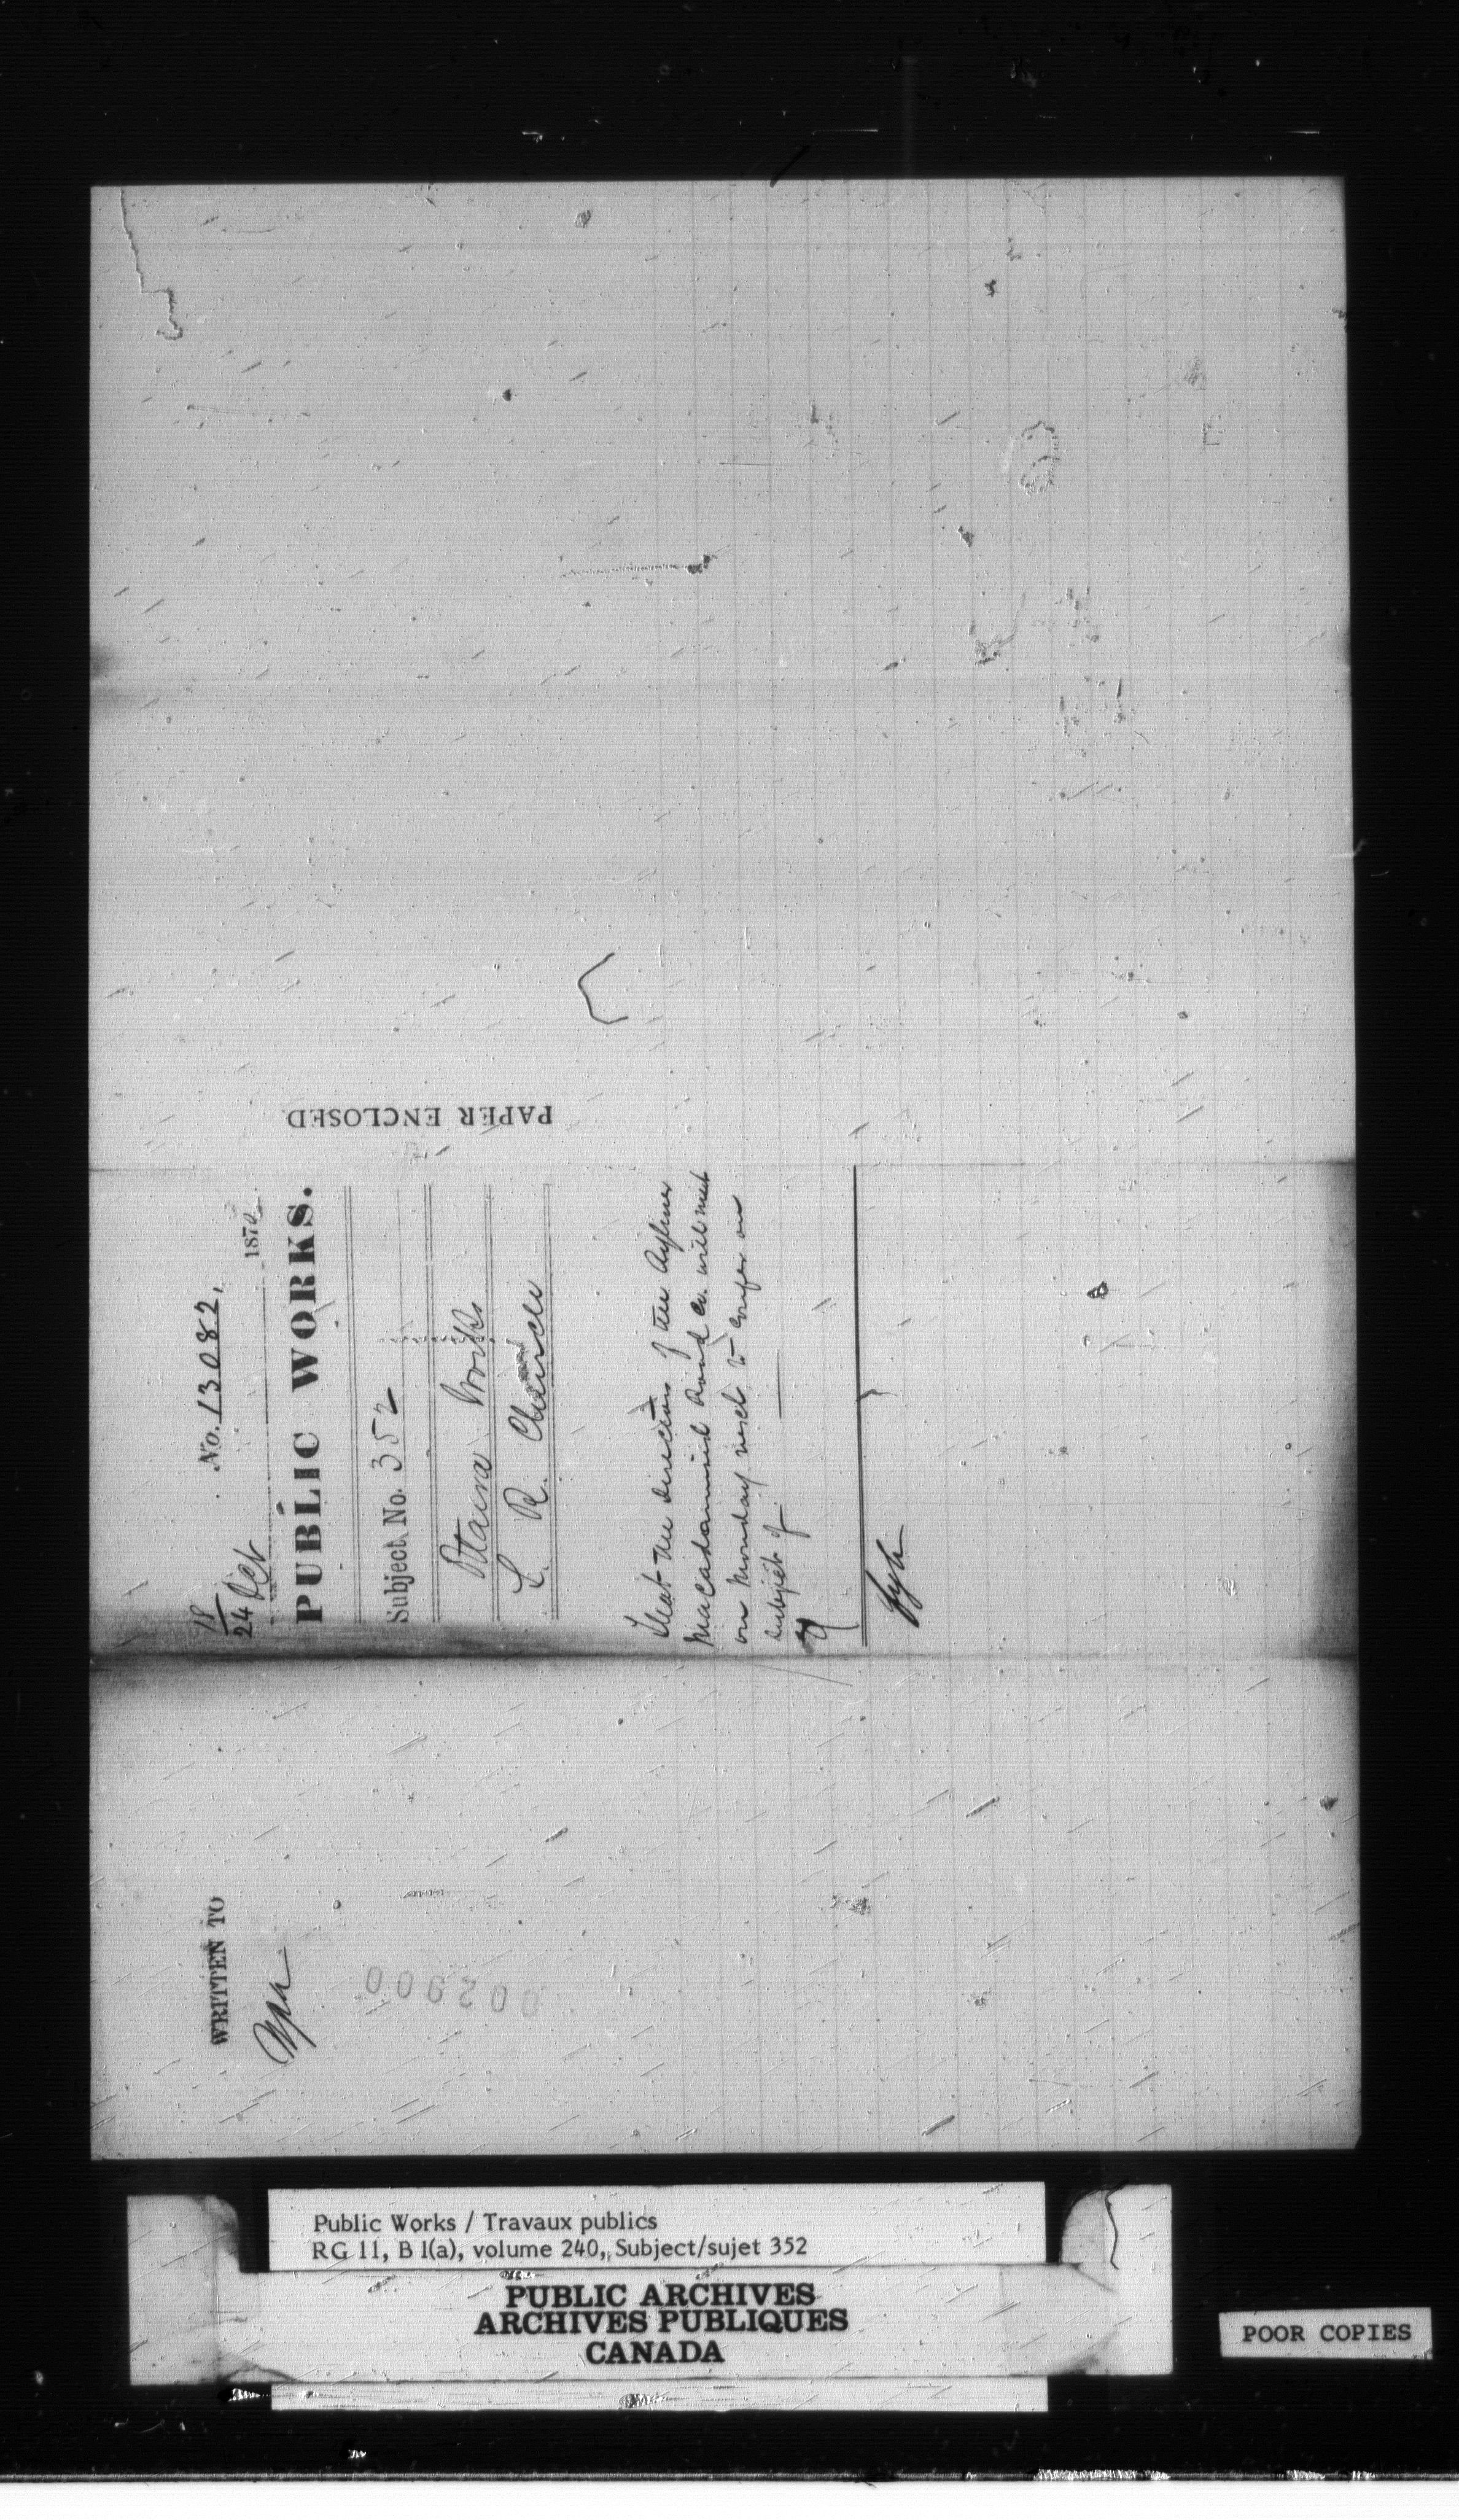 No. 13082,
18
24 Oct 1870
PUBLIC WORKS.
Subject No. 352
Ottawa Works
C. R.
That the directors of the Aylmer
Macadamized Road Co. will meet
on Monday next to confer on
subject of
PAPER ENCLOSED
WRITTEN TO
002900
Public Works / Travaux publics
RG 11, B 1(a), volume 240, Subject/sujet 352
PUBLIC ARCHIVES
ARCHIVES PUBLIQUES
CANADA
POOR COPIES